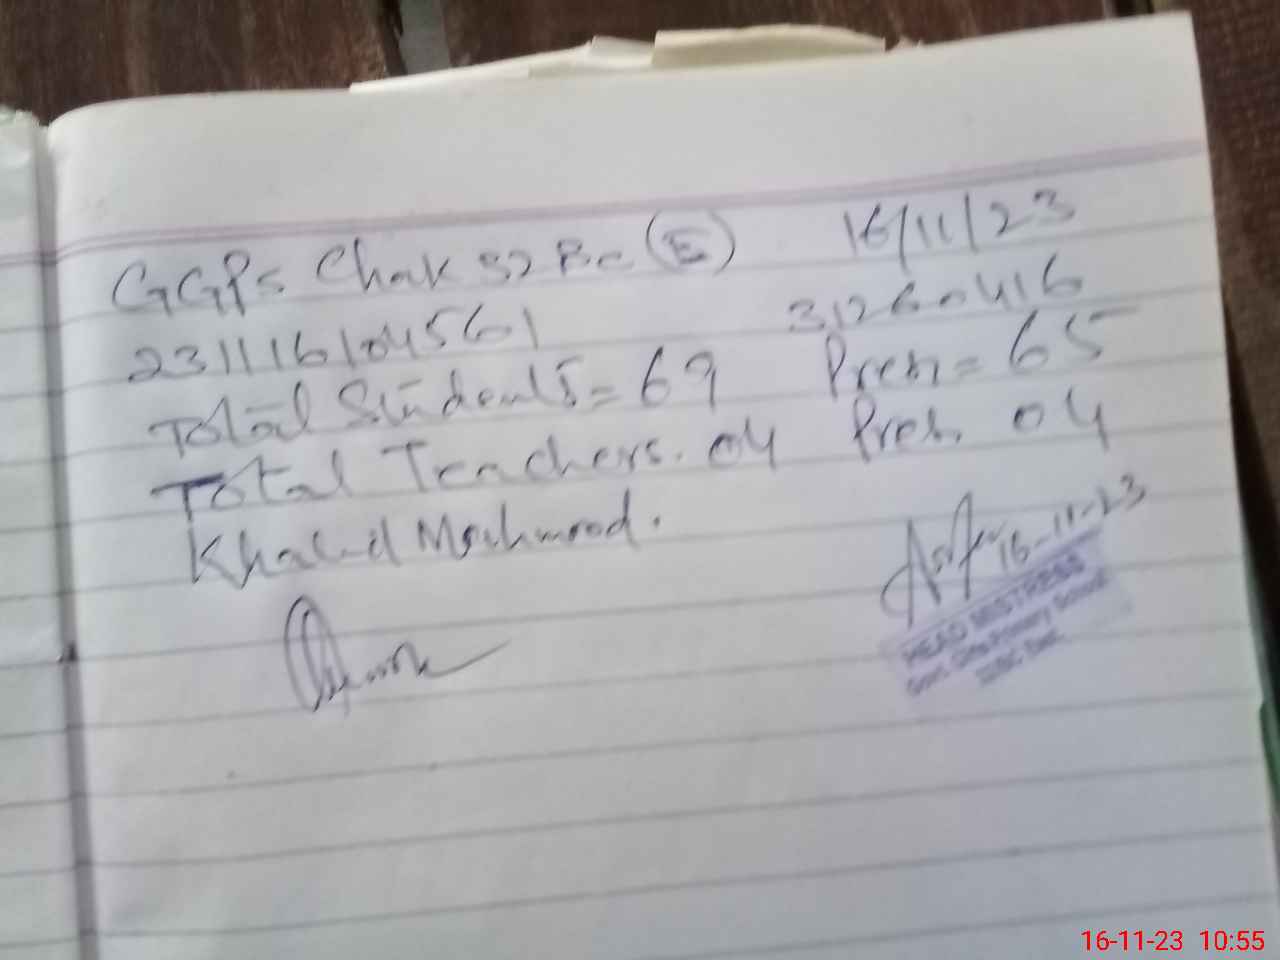 GGPS Chak 32 Bc (E) 16/11/23
231116104561 31260416
Total Students = 69 Pres = 65
Total Teachers. 04 Pres. 04
Khalid Mehmood.
16-11-23
HEAD MISTRESS
Govt. Girls Primary School
16-11-23 10:55